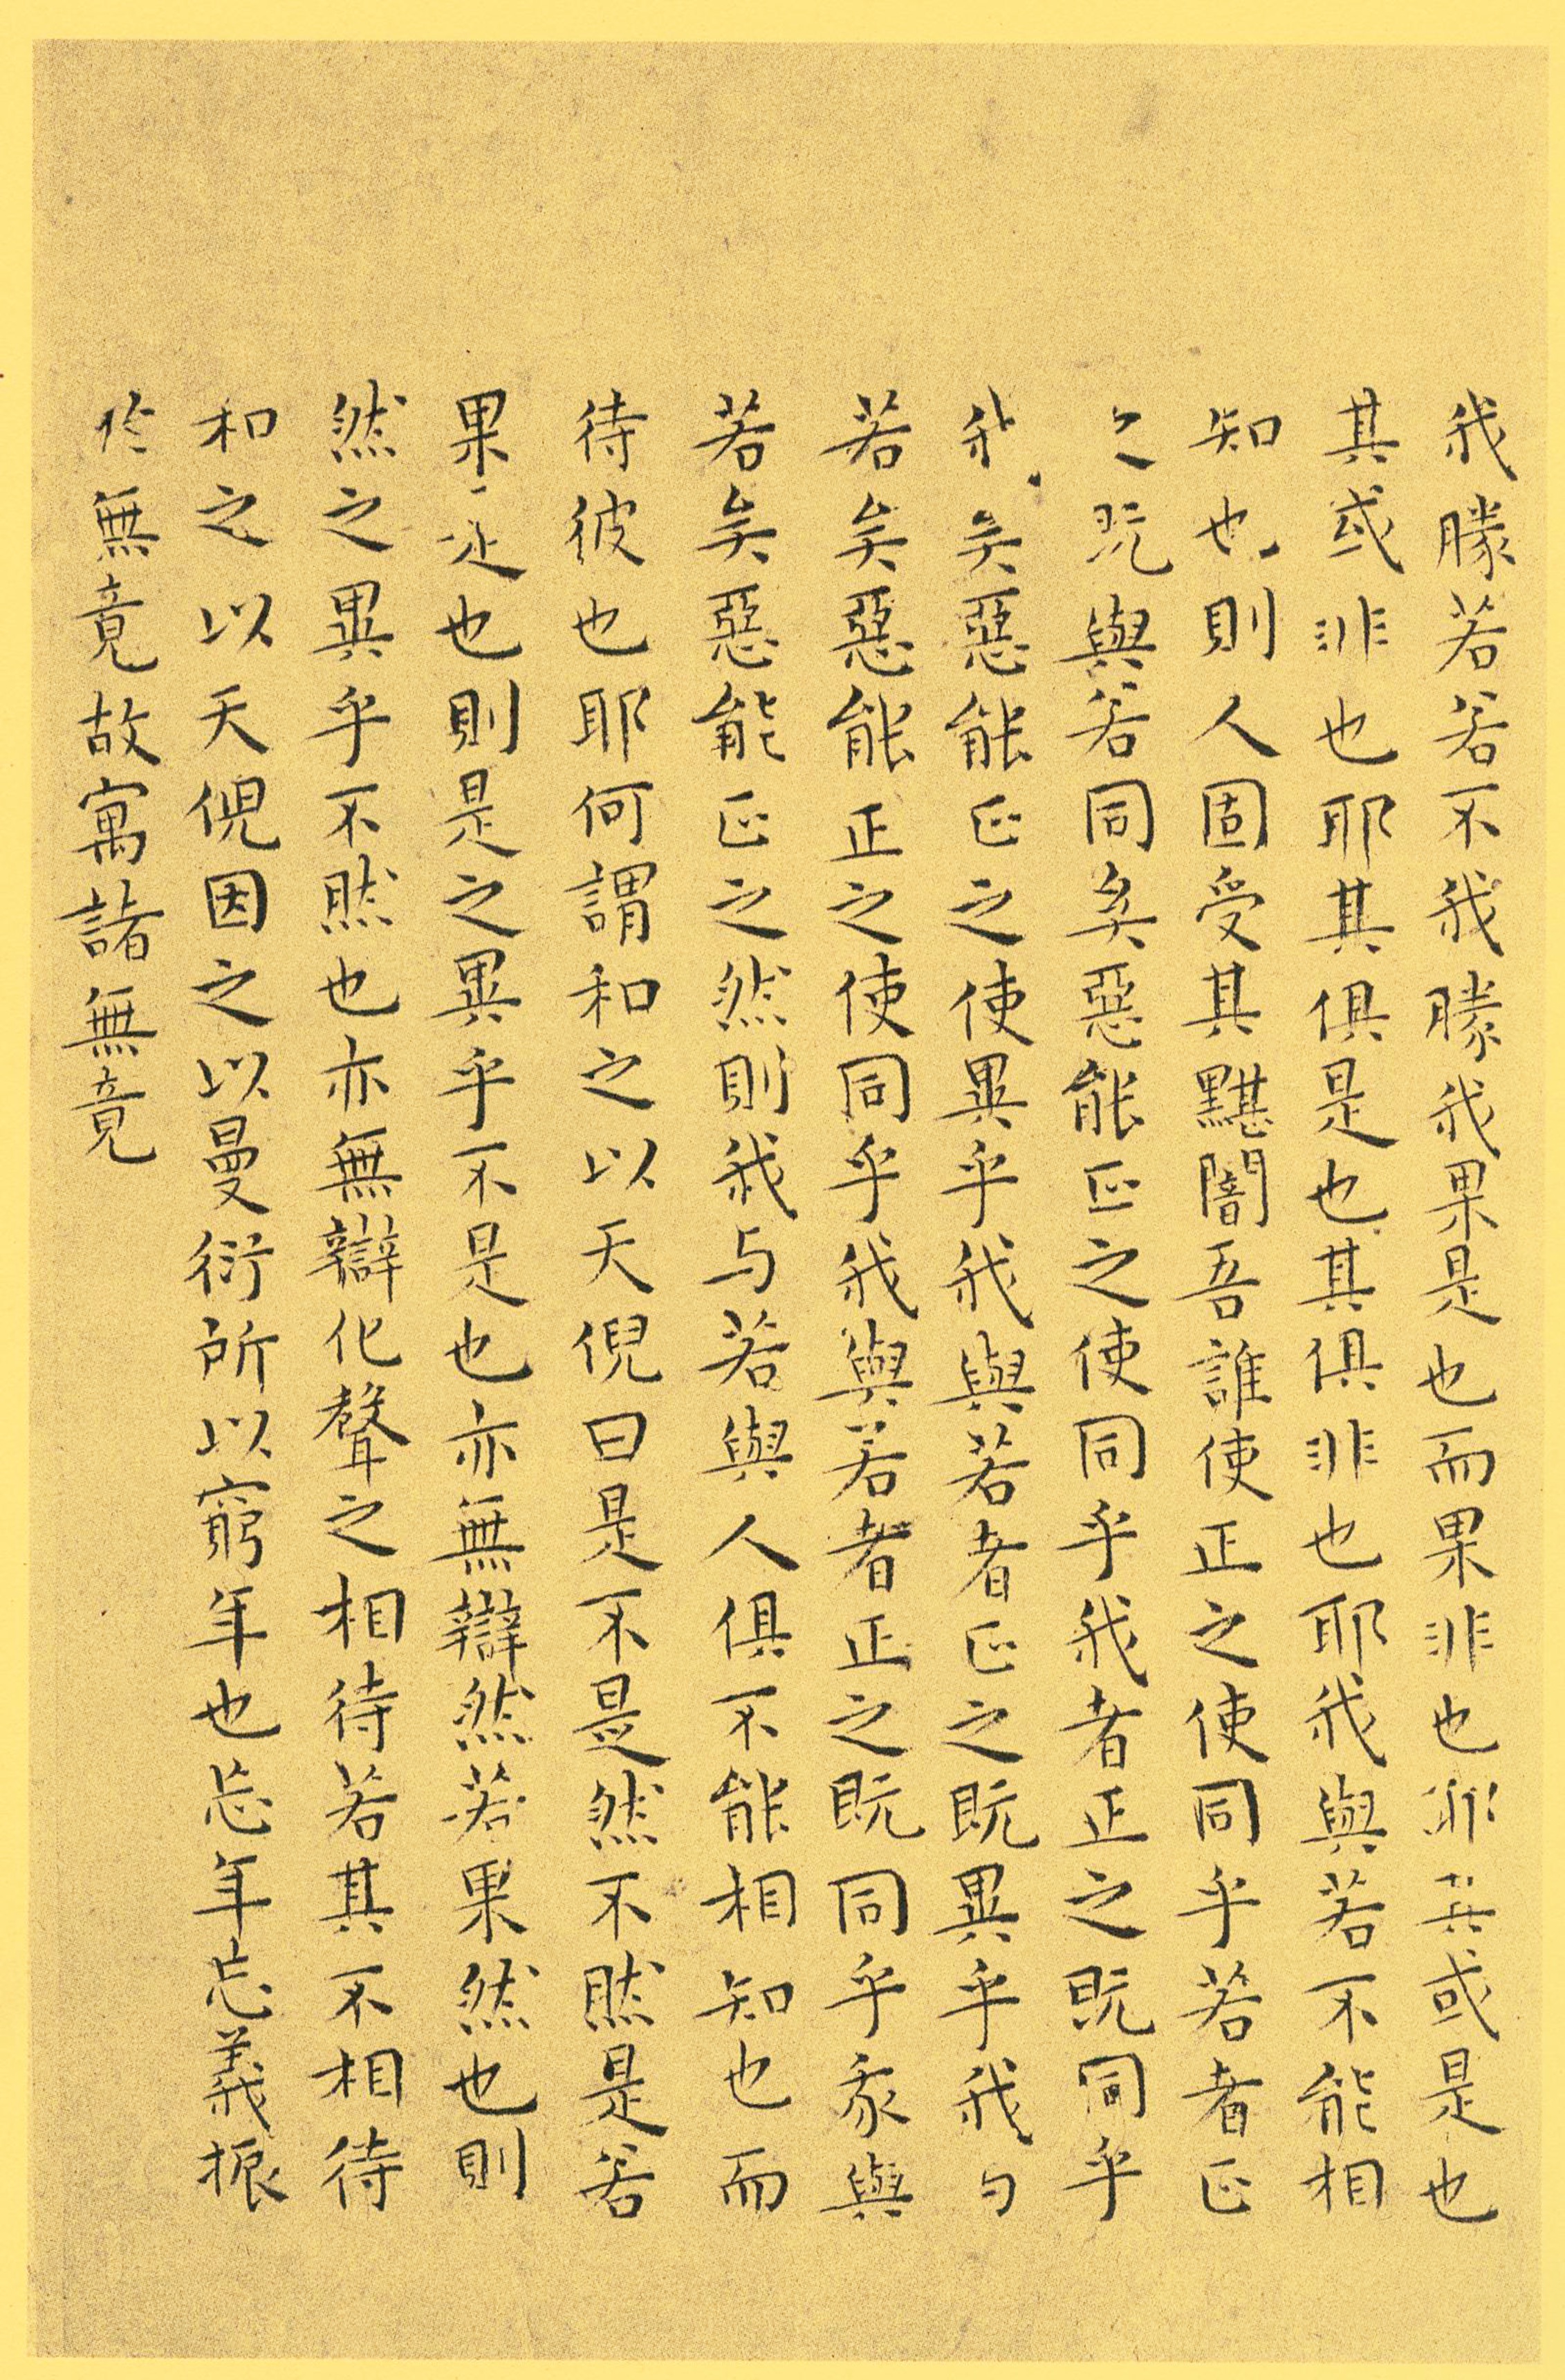 我勝若若不我勝我果是也而果非也邪其或是也
其或非也耶其俱是也其俱非也耶我與若不能相
知也則人固受其黮闇吾誰使正之使同乎若者正
之既與若同矣惡能正之使同乎我者正之既同乎
我矣惡能正之使異乎我與若者正之既異乎我与
若矣惡能正之使同乎我與若者正之既同乎我與
若矣惡能正之然則我与若與人俱不能相知也而
待彼也耶何謂和之以天倪曰是不是然不然是若
果是也則是之異乎不是也亦無辯然若果然也則
然之異乎不然也亦無辯化聲之相待若其不相待
和之以天倪因之以曼衍所以窮年也忘年忘義振
於無竟故寓諸無竟